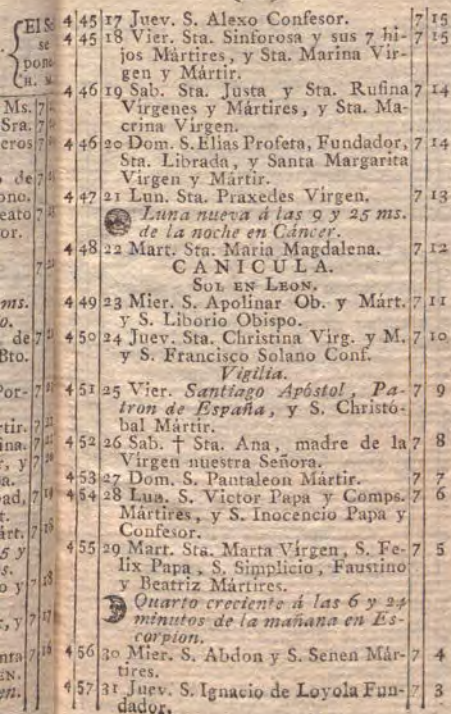 El S
se
pone
H. M
Ms. 7
Sra. 7
eros 7
de 7
ono.
eato 7
or.
7
ms.
o.
de 7
Bto.
Por- 7
rtir. 7
ina. 7
, y 7
a.
ad, 7 19
t.
árt. 7 18
5 y
s.
o y 7 18
, y 7 17
nra 7 16
EN.
en.
4 45 17 Juev. S. Alexo Confesor. 7 15
4 45 18 Vier. Sta. Sinforosa y sus 7 hi- 7 15
jos Mártires, y Sta. Marina Vir-
gen y Mártir.
4 46 19 Sab. Sta. Justa y Sta. Rufina 7 14
Vírgenes y Mártires, y Sta. Ma-
crina Virgen.
4 46 20 Dom. S. Elias Profeta, Fundador, 7 14
Sta. Librada, y Santa Margarita
Virgen y Mártir.
4 47 21 Lun. Sta. Praxedes Virgen. 7 13
Luna nueva á las 9 y 25 ms.
de la noche en Cáncer.
4 48 22 Mart. Sta. Maria Magdalena. 7 12
CANICULA.
SOL EN LEON.
4 49 23 Mier. S. Apolinar Ob. y Márt. 7 11
y S. Liborio Obispo.
4 50 24 Juev. Sta. Christina Virg. y M. 7 10
y S. Francisco Solano Conf.
Vigilia.
4 51 25 Vier. Santiago Apóstol, Pa- 7 9
tron de España, y S. Christó-
bal Mártir.
4 52 26 Sab. † Sta. Ana, madre de la 7 8
Virgen nuestra Señora.
4 53 27 Dom. S. Pantaleon Mártir. 7 7
4 54 28 Lun. S. Victor Papa y Comps. 7 6
Mártires, y S. Inocencio Papa y
Confesor.
4 55 29 Mart. Sta. Marta Vírgen, S. Fe- 7 5
lix Papa, S. Simplicio, Faustino
y Beatriz Mártires.
Quarto creciente á las 6 y 24
minutos de la mañana en Es-
corpion.
4 56 30 Mier. S. Abdon y S. Senen Már- 7 4
tires.
4 57 31 Juev. S. Ignacio de Loyola Fun- 7 3
dador.